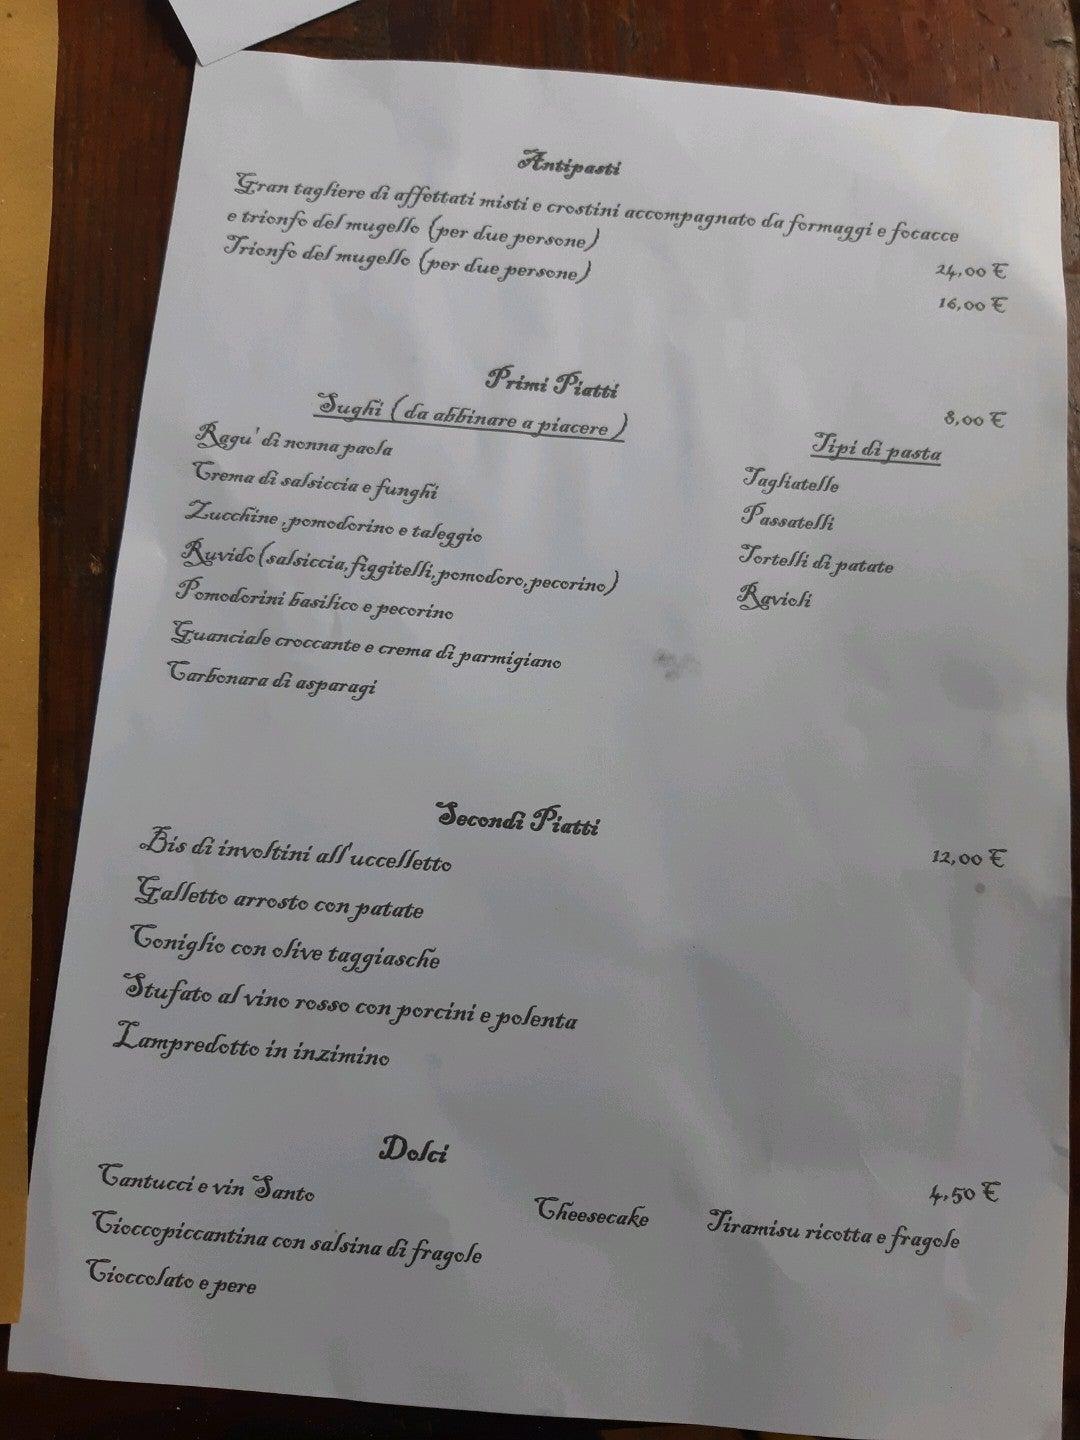 Antipasti
Gran tagliere di affettati misti e crostini accompagnato da formaggi e focacce
e trionfo del mugello (per due persone)
24,00 €
Trionfo del mugello (per due persone)
16,00 €
Primi Piatti
8,00 €
Sughi ( da abbinare a piacere )
Ragu' di nonna paola
Crema di salsiccia e funghi
Zucchine ,pomodorino e taleggio
Ruvido (salsiccia,figgitelli,pomodoro,pecorino)
Pomodorini basilico e pecorino
Guanciale croccante e crema di parmigiano
Carbonara di asparagi
Tipi di pasta
Tagliatelle
Passatelli
Tortelli di patate
Ravioli
Secondi Piatti
12,00 €
Bis di involtini all'uccelletto
Galletto arrosto con patate
Coniglio con olive taggiasche
Stufato al vino rosso con porcini e polenta
Lampredotto in inzimino
Dolci
4,50 €
Cantucci e vin Santo
Cheesecake
Tiramisu ricotta e fragole
Cioccopiccantina con salsina di fragole
Cioccolato e pere